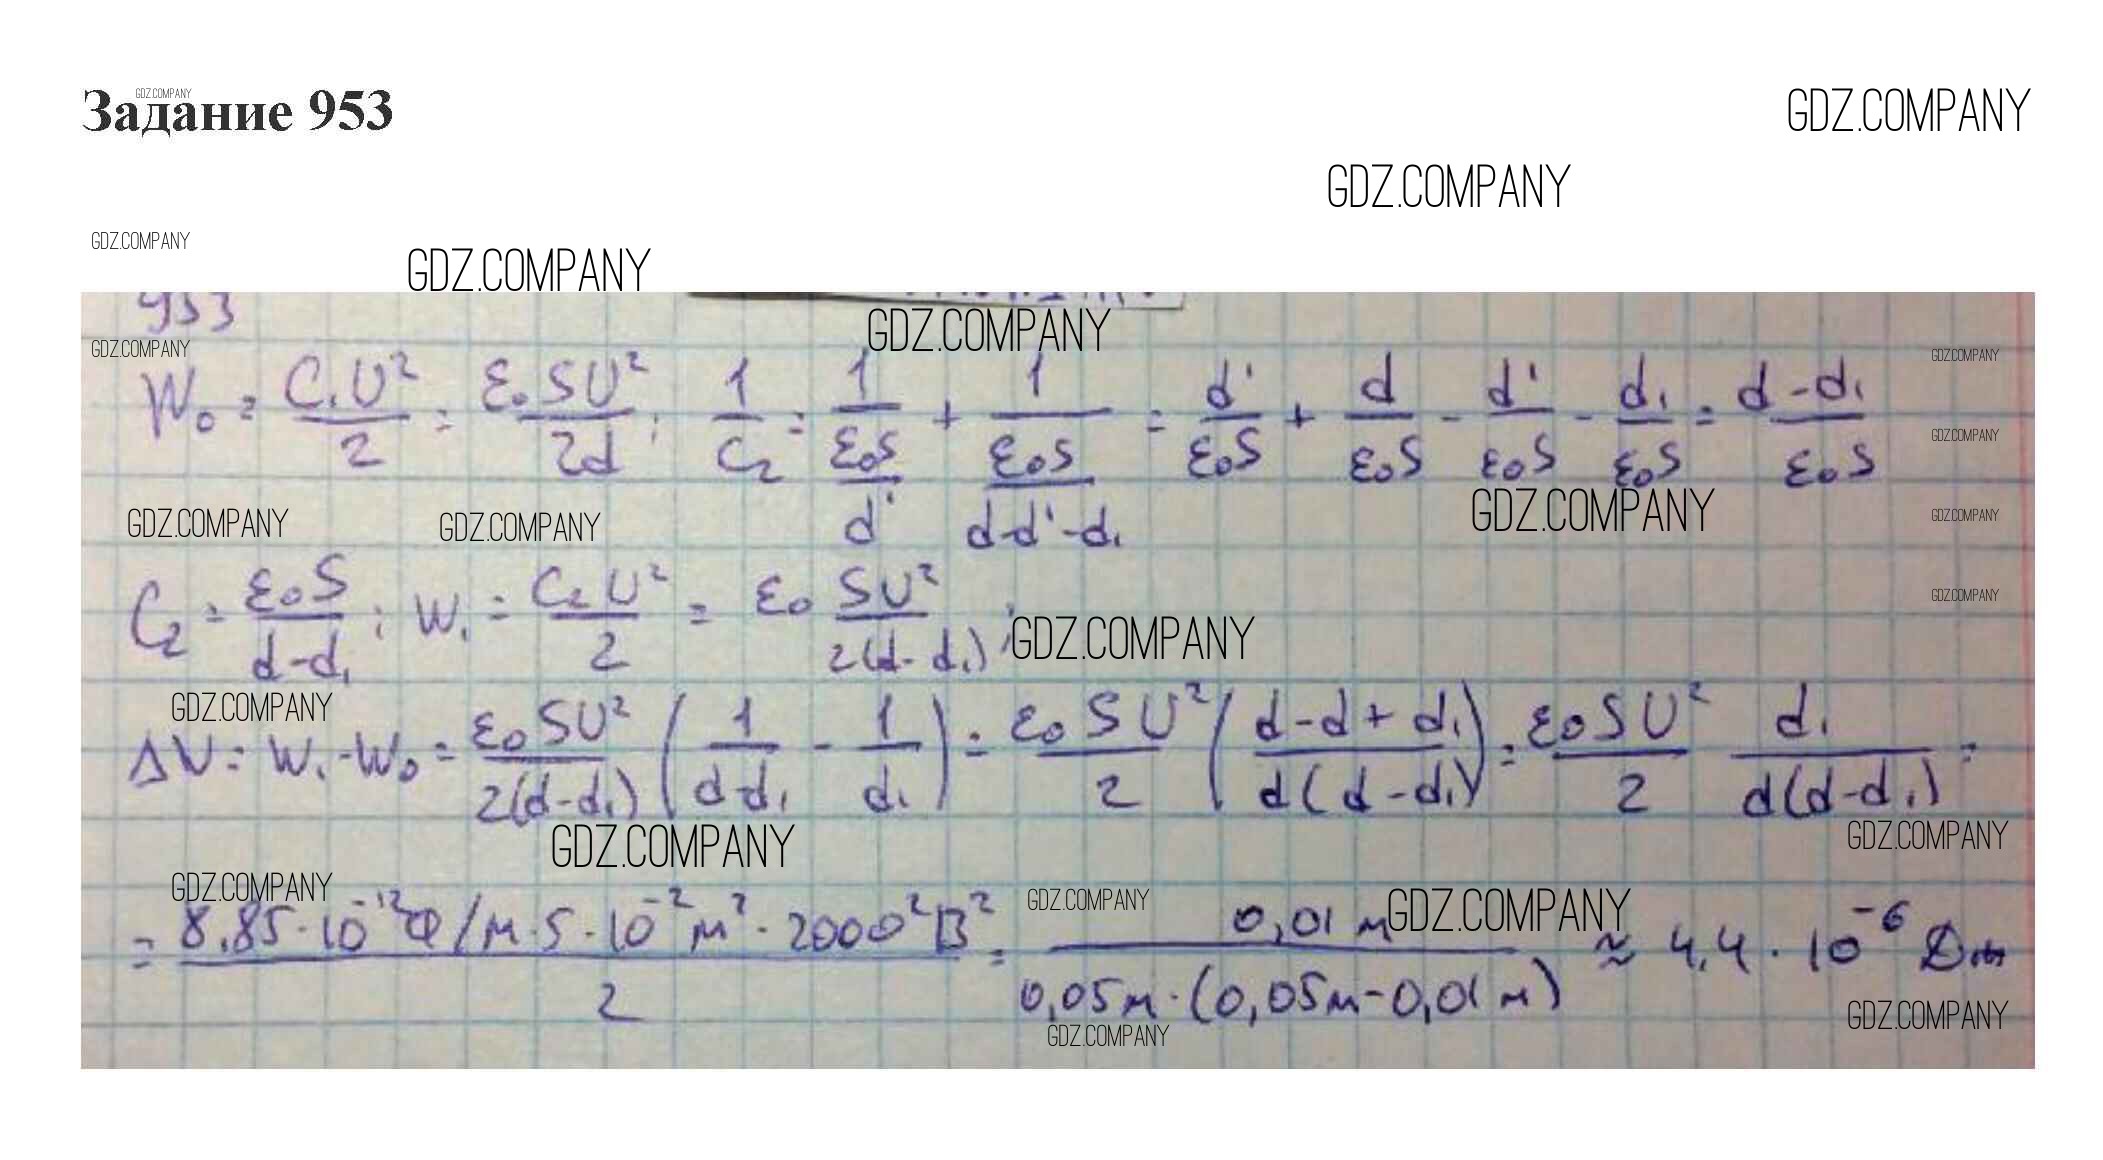 GDZ.COMPANY
Задание 953
GDZ.COMPANY
GDZ.COMPANY
GDZ.COMPANY
GDZ.COMPANY
953
GDZ.COMPANY
GDZ.COMPANY
GDZ.COMPANY
W₀ = C₁U²/2 = ε₀SU²/2d ; 1/C₂ = 1/(ε₀S/d') + 1/(ε₀S/(d-d'-d₁)) = d'/ε₀S + d/ε₀S - d'/ε₀S - d₁/ε₀S = (d-d₁)/ε₀S
GDZ.COMPANY
GDZ.COMPANY
GDZ.COMPANY
GDZ.COMPANY
GDZ.COMPANY
C₂ = ε₀S/(d-d₁) ; W₁ = C₂U²/2 = ε₀ SU²/2(d-d₁) ;
GDZ.COMPANY
GDZ.COMPANY
GDZ.COMPANY
ΔW = W₁-W₀ = ε₀SU²/2(d-d₁) (1/(d-d₁) - 1/d₁) = ε₀SU²/2 ((d-d+d₁)/d(d-d₁)) = ε₀SU²/2 d₁/d(d-d₁) =
GDZ.COMPANY
GDZ.COMPANY
GDZ.COMPANY
GDZ.COMPANY
GDZ.COMPANY
= 8,85·10⁻¹²Ф/м·5·10⁻²м²·2000²В²/2 = 0,01м/0,05м·(0,05м-0,01м) ≈ 4,4·10⁻⁶ Дж
GDZ.COMPANY
GDZ.COMPANY